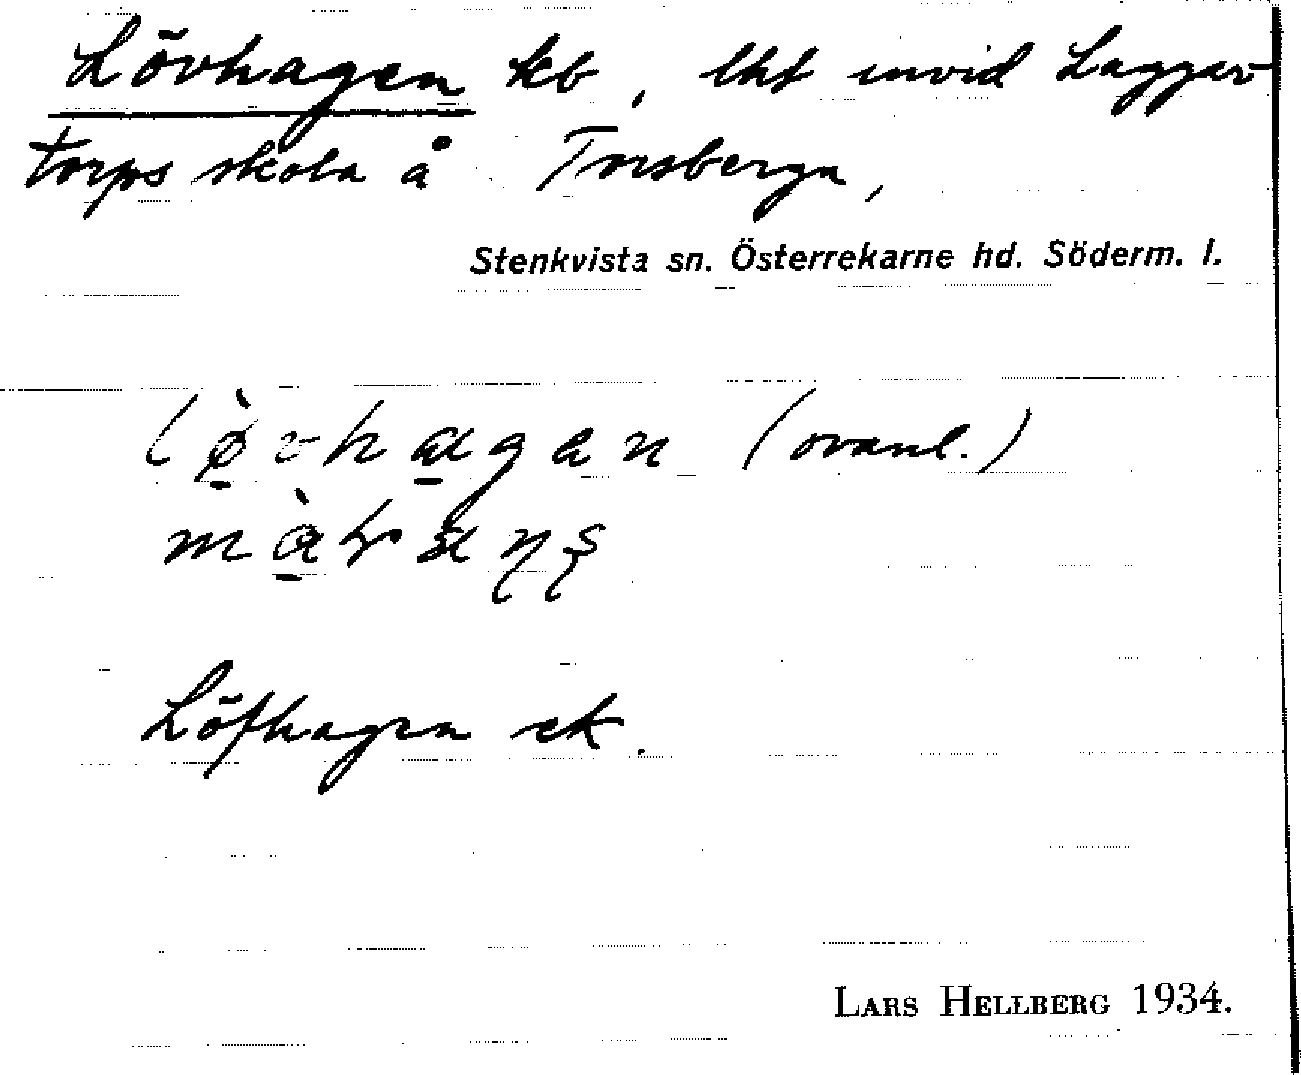 Lövhagen kb, lht invid Laggar
torps skola å Torsberga,
Stenkvista sn. Österrekarne hd. Söderm. l.
lø̀vhagan (ovanl.)
Löfhagen ek.
LARS HELLBERG 1934.